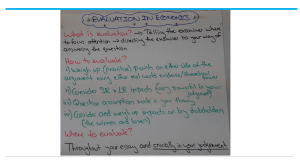 EVALUATION IN ECONOMICS
What is evaluation? → Telling the examiner where
to focus attention → directing the examiner to your way of
answering the question
How to evaluate?
i) Weigh up (prioritise) points on either side of the
argument using either real world evidence/theoretical
ii) Consider SR + LR impacts (very powerful to your
judgement)
iii) Question assumptions made in your theory
iv) Consider and weigh up impacts on key stakeholders
(the winners and losers)
Where to evaluate?
Throughout your essay and crucially in your judgement